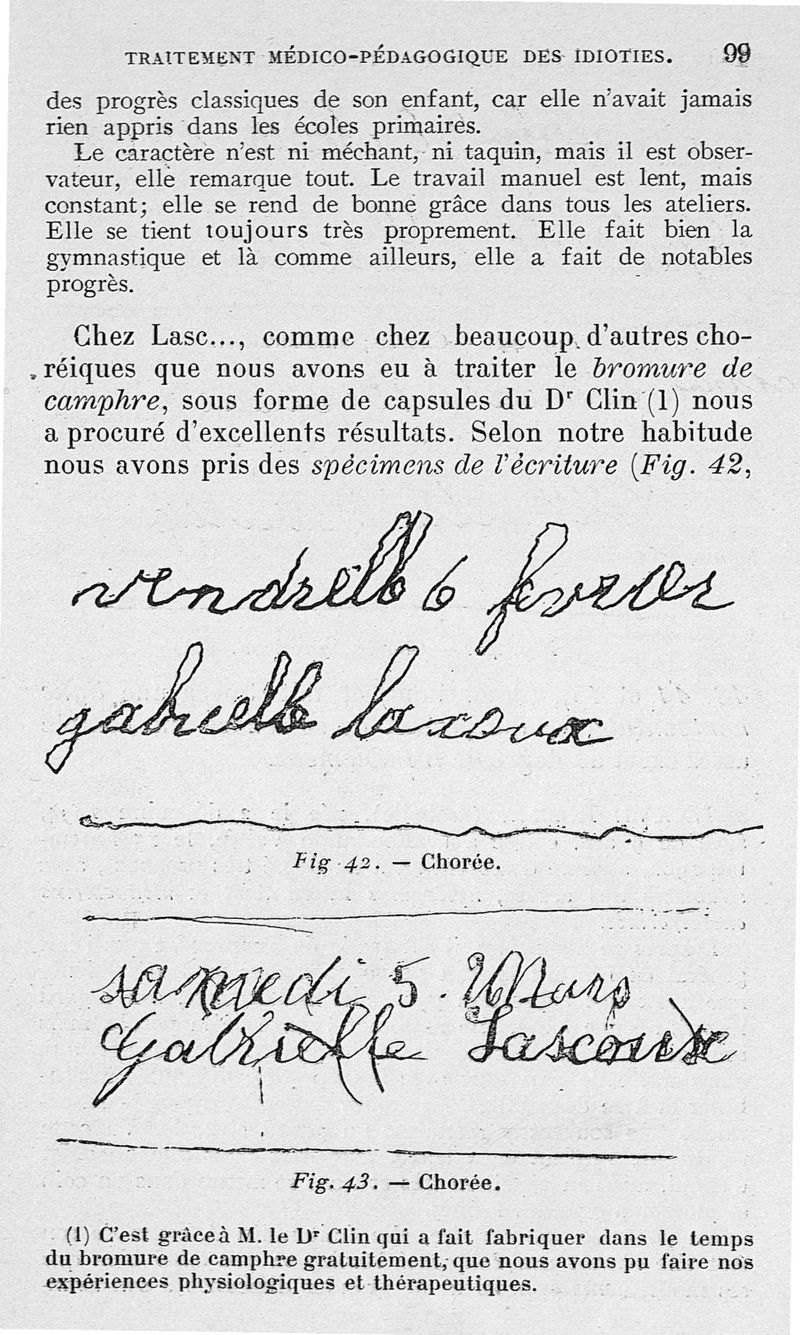 TRAITEMENT MÉDICO-PÉDAGOGIQUE DES IDIOTIES. 99
des progrès classiques de son enfant, car elle n'avait jamais
rien appris dans les écoles primaires.
Le caractère n'est ni méchant, ni taquin, mais il est obser-
vateur, elle remarque tout. Le travail manuel est lent, mais
constant; elle se rend de bonne grâce dans tous les ateliers.
Elle se tient toujours très proprement. Elle fait bien la
gymnastique et là comme ailleurs, elle a fait de notables
progrès.
Chez Lasc..., comme chez beaucoup d'autres cho-
réiques que nous avons eu à traiter le bromure de
camphre, sous forme de capsules du Dr Clin (1) nous
a procuré d'excellents résultats. Selon notre habitude
nous avons pris des spécimens de l'écriture (Fig. 42,
vendrelle 6 fevrier
gabrielle lascoux
Fig 42. — Chorée.
samedi 5. Mars
Gabrielle Lascoux
Fig. 43. — Chorée.
(1) C'est grâce à M. le Dr Clin qui a fait fabriquer dans le temps
du bromure de camphre gratuitement, que nous avons pu faire nos
expériences physiologiques et thérapeutiques.